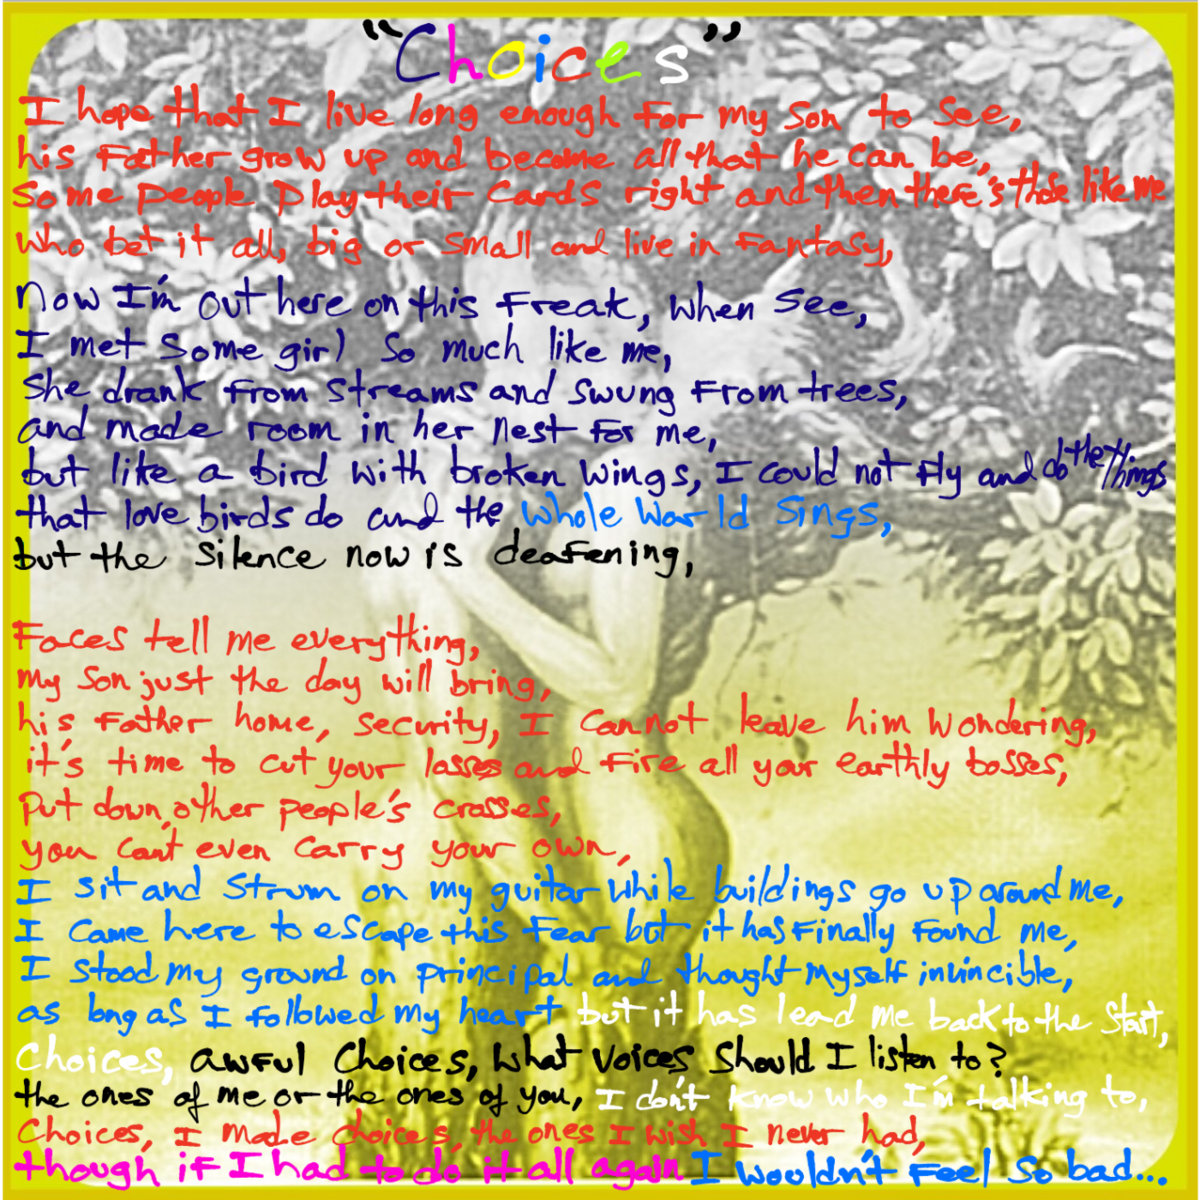 "Choices"
I hope that I live long enough for my son to see,
his father grow up and become all that he can be,
Some people play their cards right and then there's those like me
who bet it all, big or small and live in fantasy,
now I'm out here on this freak, when see,
I met some girl so much like me,
She drank from streams and swung from trees,
and made room in her nest for me,
but like a bird with broken wings, I could not fly and do the things
that love birds do and the whole world sings,
but the silence now is deafening,
Faces tell me everything,
my son just the day will bring,
his father home, security, I cannot leave him wondering,
it's time to cut your losses and fire all your earthly bosses,
put down other people's crosses,
you can't even carry your own,
I sit and strum on my guitar while buildings go up around me,
I came here to escape this fear but it has finally found me,
I stood my ground on principal and thought myself invincible,
as long as I followed my heart but it has lead me back to the start,
Choices, awful choices, what voices should I listen to?
the ones of me or the ones of you, I don't know who I'm talking to,
Choices, I made choices, the ones I wish I never had,
though if I had to do it all again I wouldn't feel so bad...